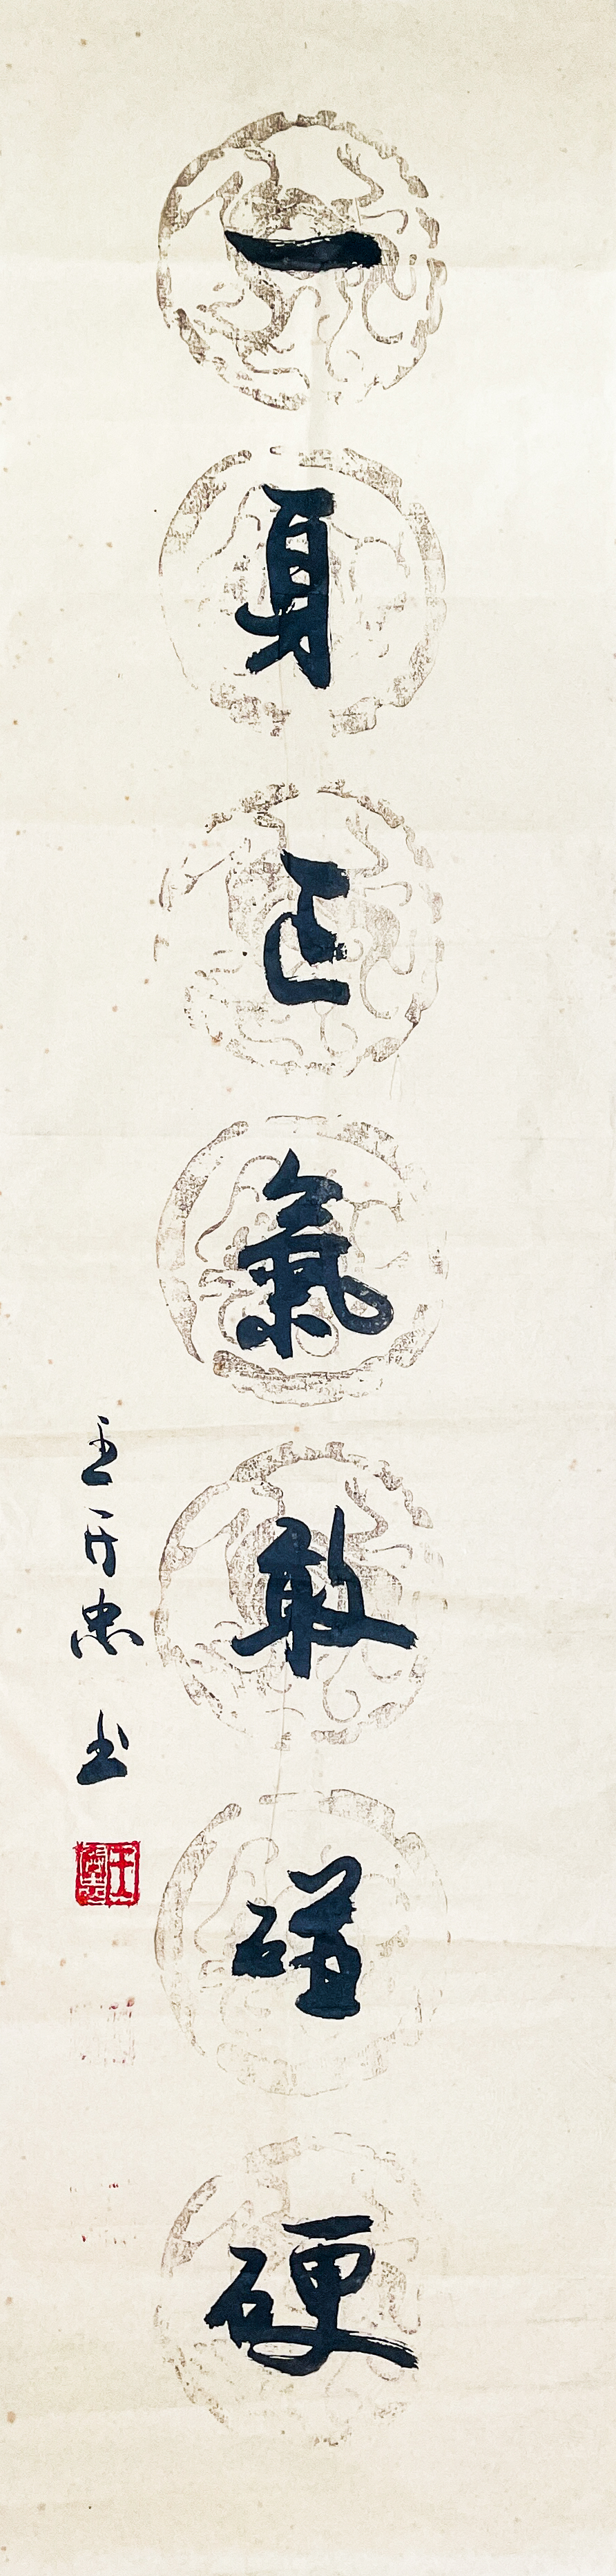 一身正氣敢碰硬
王開忠書